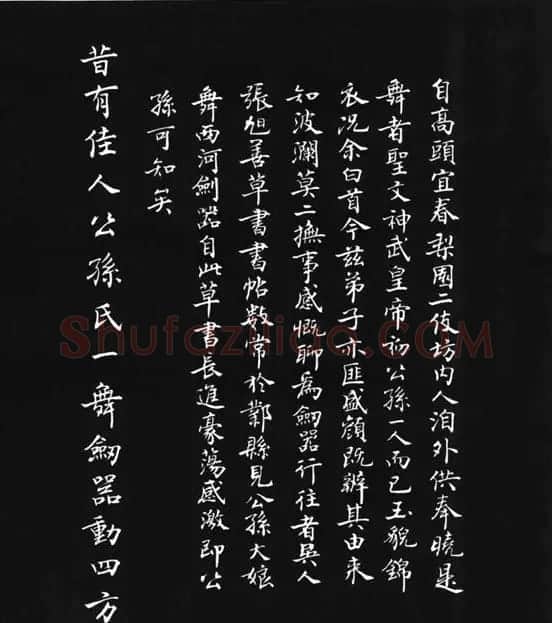 自高頭宜春梨園二伎坊內人洎外供奉曉是
舞者聖文神武皇帝初公孫一人而已玉貌錦
衣況余白首今茲弟子亦匪盛顏既辨其由來
知波瀾莫二撫事感慨聊為劒器行往者吳人
張旭善草書書帖數常於鄴縣見公孫大娘
舞西河劍器自此草書長進豪蕩感激即公
孫可知矣
昔有佳人公孫氏一舞劒器動四方
Shufaziliao.COM